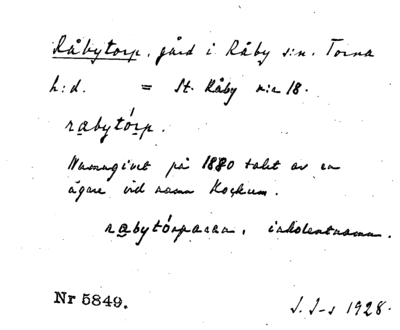 Råbytorp, gård i Råby s:n. Torna
h:d. = St. Råby n:r 18.
rabytórp.
Namngivet på 1880 talet av en
ägare vid namn Kockum.
rabytórparen, inkolentnamn.
Nr 5849.
S. I-s 1928.